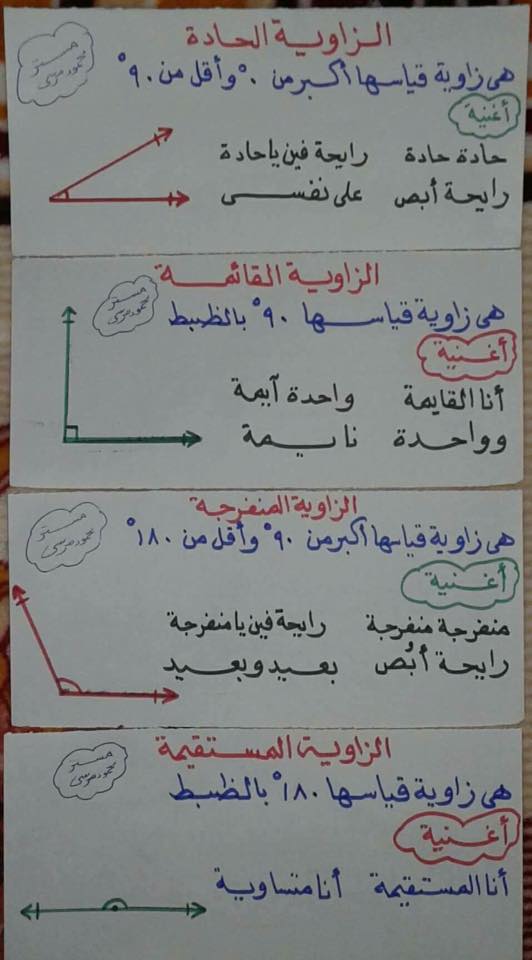 الزاوية الحادة
مستر
محمود مرسى
هى زاوية قياسها أكبر من ٠° وأقل من ٩٠°
أغنية
حادة حادة رايحة فين يا حادة
رايحة أبص على نفسى
الزاوية القائمة
مستر
محمود مرسى
هى زاوية قياسها ٩٠° بالظبط
أغنية
أنا القايمة واحدة آيمة
وواحدة نايمة
الزاوية المنفرجة
مستر
محمود مرسى
هى زاوية قياسها أكبر من ٩٠° وأقل من ١٨٠°
أغنية
منفرجة منفرجة رايحة فين يا منفرجة
رايحة أبُص بعيد وبعيد
الزاوية المستقيمة
مستر
محمود مرسى
هى زاوية قياسها ١٨٠° بالظبط
أغنية
أنا المستقيمة أنا متساوية